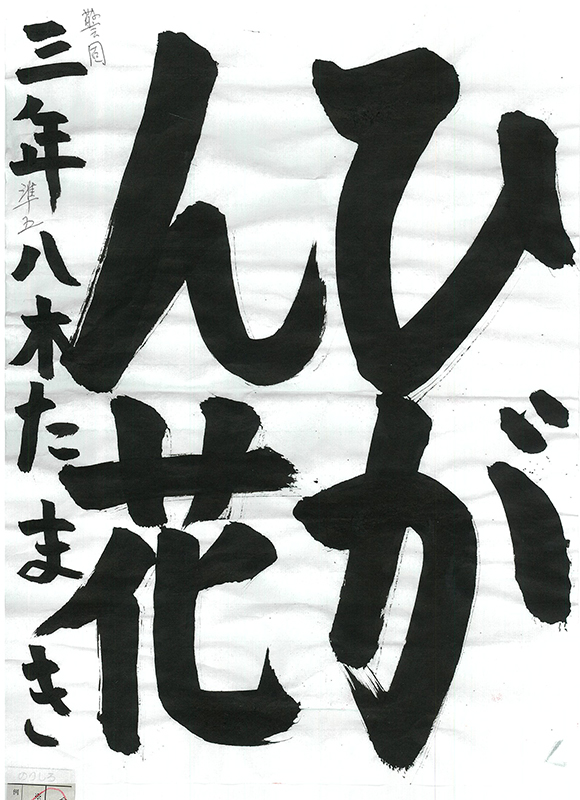 ひが
ん花
三年 八木たまき
警固
準五
のりしろ